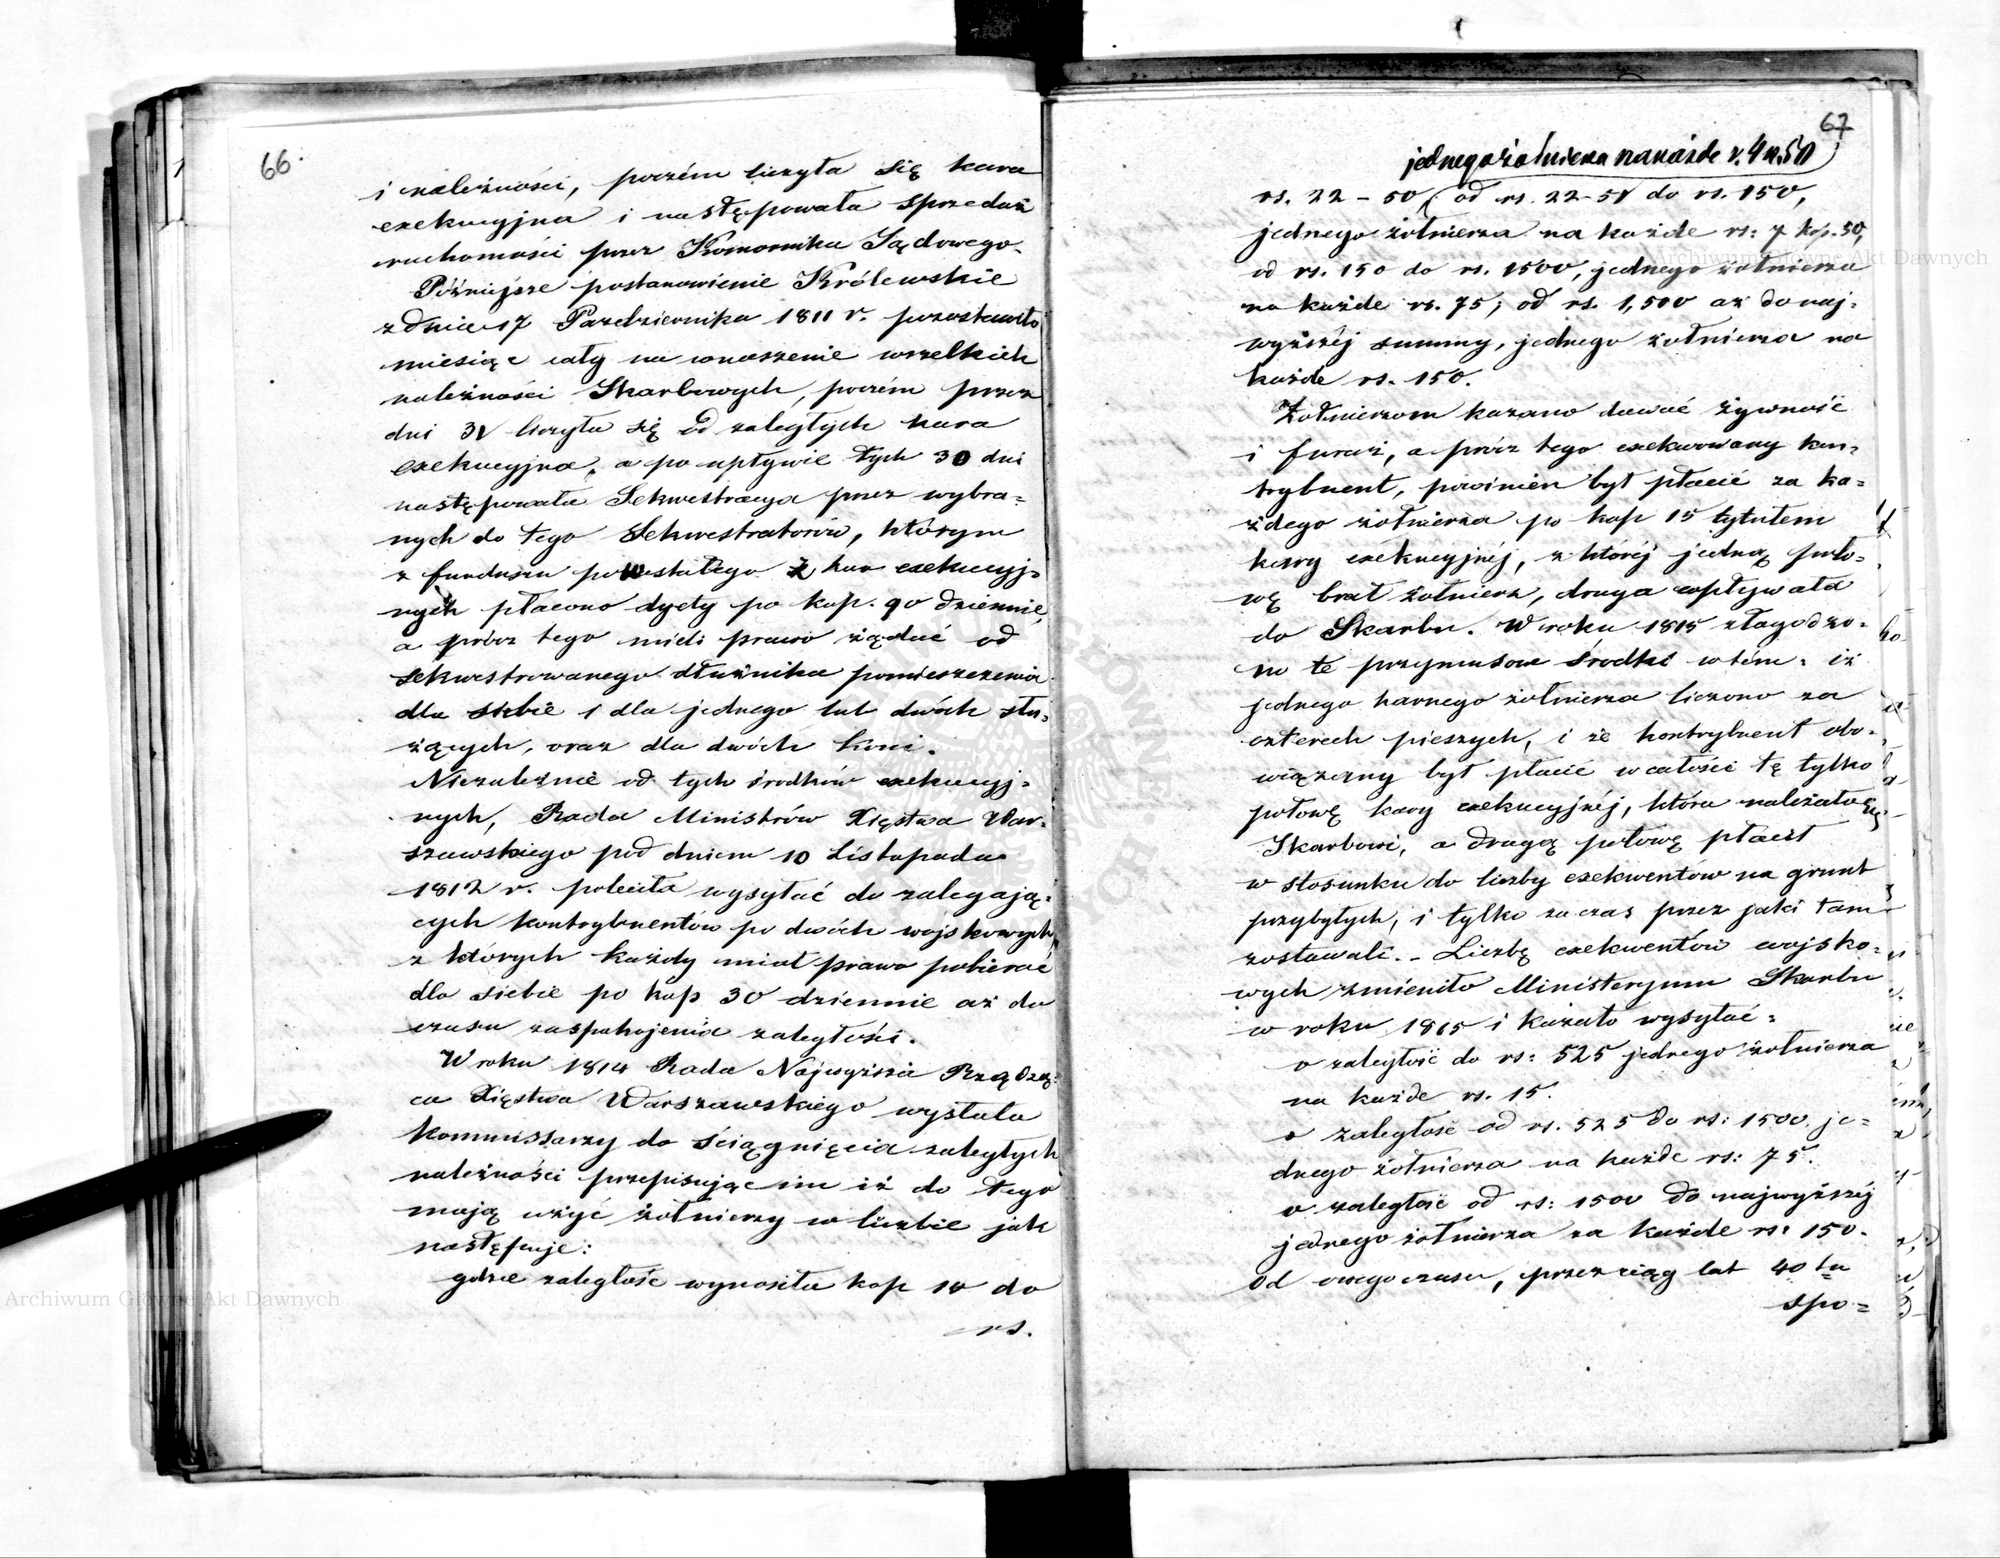 66.
i należności, poczém liczyła się kara
exekucyjna i następowała sprzedaż
ruchomości przez Komornika Sądowego.
Późniejsze postanowienie Królewskie
z dnia 17 Października 1811 r. pozostawiło
miesiąc cały na wnoszenie wszelkich
należności Skarbowych, poczém przez
dni 30 liczyła się od zaległych kara
exekucyjna, a po upływie tych 30 dni
następowała Sekwestracya przez wybra=
nych do tego Sekwestratorów, którym
z funduszu powstałego z kar exekucyj=
nych płacono dyety po kop. 90 dziennie,
a prócz tego mieli prawo żądać od
sekwestrowanego dłużnika pomieszczenia
dla siebie i dla jednego lub dwóch słu=
żących, oraz dla dwóch koni.
Niezależnie od tych środków exekucyj=
nych, Rada Ministrów Xięstwa War=
szawskiego pod dniem 10 Listopada
1812 r. poleciła wysyłać do zalegają=
cych kontrybuentów po dwóch wojskowych,
z których każdy miał prawo pobierać
dla siebie po kop 30 dziennie aż do
czasu zaspokojenia zaległości.
W roku 1814 Rada Najwyższa Rządzą=
ca Xięstwa Warszawskiego wysłała
Kommissarzy do ściągnięcia zaległych
należności przepisując im iż do tego
mają użyć żołnierzy w liczbie jak
następuje:
gdzie zaległość wynosiła kop 10 do
rs.
67
jednego żołnierza na każde r. 4 k. 50
rs. 22 - 50, od rs. 22-51 do rs. 150,
jednego żołnierza na każde rs: 7 kop. 50,
od rs. 150 do rs. 1500, jednego żołnierza
na każde rs. 75; od rs. 1,500 aż do naj=
wyższéj summy, jednego żołnierza na
każde rs. 150.
Żołnierzom kazano dawać żywność
i furaż, a prócz tego exekwowany kon=
trybuent, powinien był płacić za ka=
żdego żołnierza po kop 15 tytułem
kary exekucyjnéj, z któréj jedną poło=
wę brał żołnierz, druga wpływała
do Skarbu. W roku 1815 złagodzo=
no te przymusowe środki w tém: iż
jednego konnego żołnierza liczono za
czterech pieszych, i że kontrybuent obo=
wiązany był płacić w całości tę tylko
połowę kary exekucyjnéj, która należała się
Skarbowi, a drugą połowę płacił
w stosunku do liczby exekwentów na grunt
przybyłych, i tylko za czas przez jaki tam
zostawali. - Liczbę exekwentów wojsko=
wych zmieniło Ministeryum Skarbu
w roku 1815 i kazało wysyłać:
o zaległość do rs: 525 jednego żołnierza
na każde rs. 15.
o zaległość od rs. 525 do rs: 1500, je=
dnego żołnierza na każde rs: 75.
o zaległość od rs: 1500 do najwyższéj
jednego żołnierza za każde rs: 150.
Od owego czasu, przez ciąg lat 40tu
spo=
Archiwum Główne Akt Dawnych
Archiwum Główne Akt Dawnych